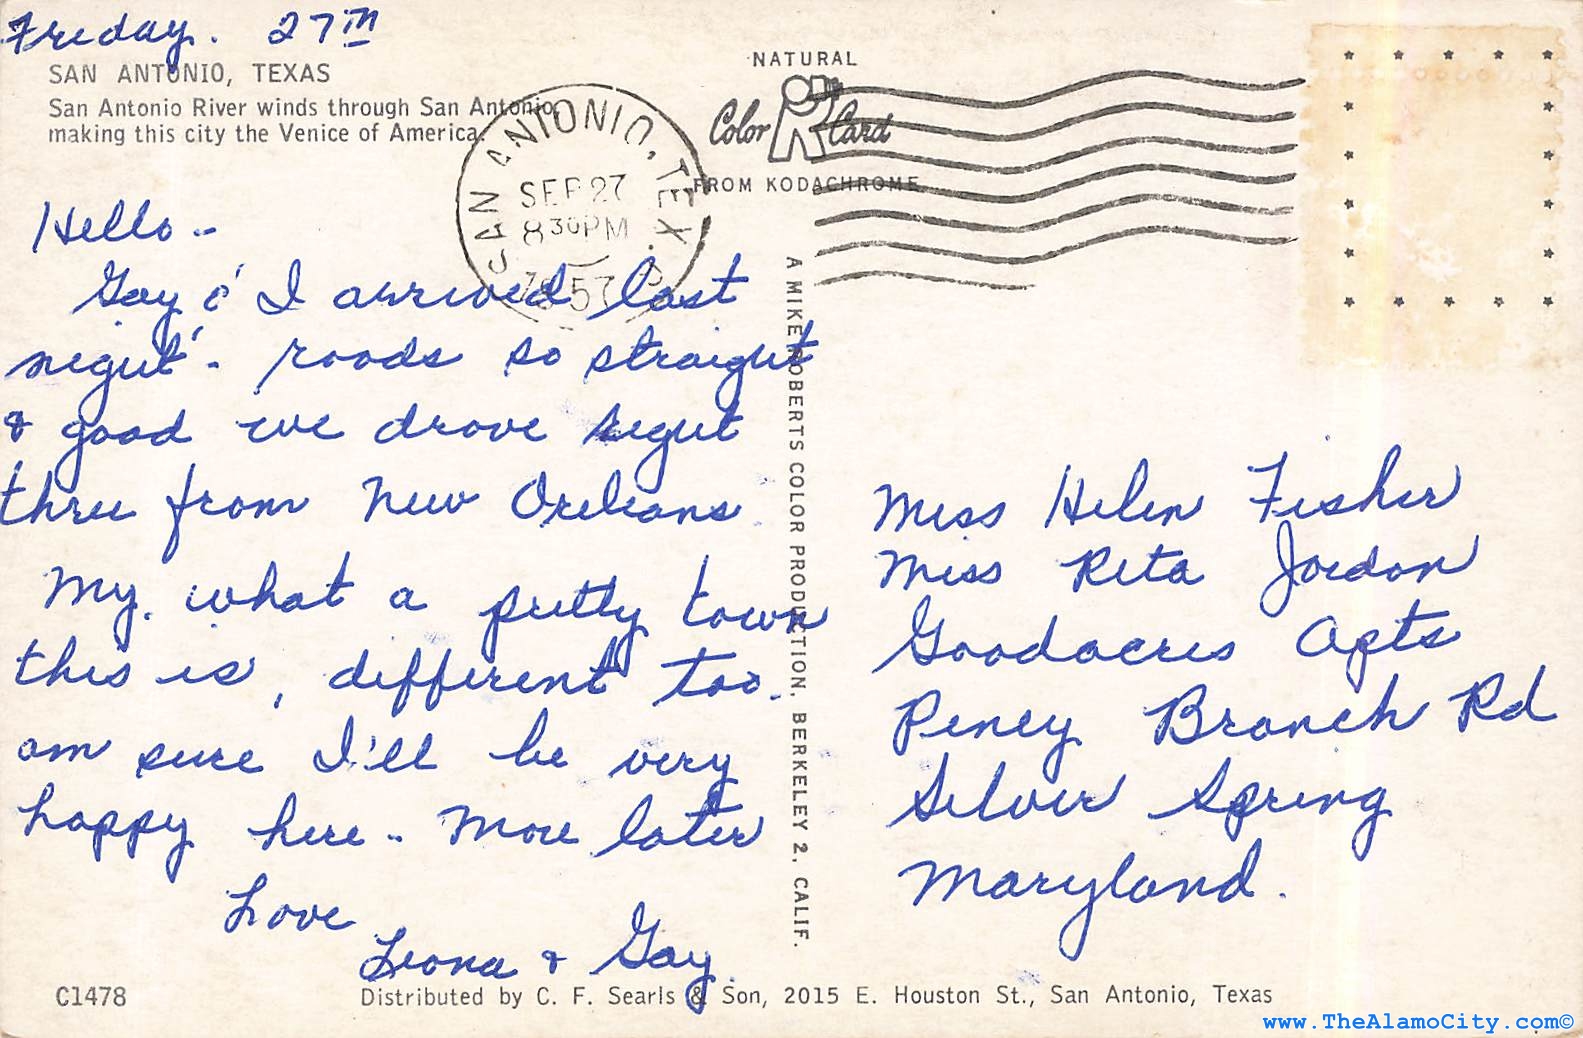 Friday. 27th
SAN ANTONIO, TEXAS
San Antonio River winds through San Antonio,
making this city the Venice of America.
SAN ANTONIO, TEX.
SEP 27
8 30 PM
1957
NATURAL
Color Card
FROM KODACHROME
Hello -
Gay & I arrived last
night - roads so straight
& good we drove right
thru from New Orleans
My, what a pretty town
this is, different too.
am sure I'll be very
happy here - More later
Love
Leona & Gay
A MIKE ROBERTS COLOR PRODUCTION, BERKELEY 2, CALIF.
Miss Helen Fisher
Miss Rita Jordan
Goodacres Apts
Piney Branch Rd
Silver Spring
Maryland.
C1478
Distributed by C. F. Searls & Son, 2015 E. Houston St., San Antonio, Texas
www.TheAlamoCity.com©